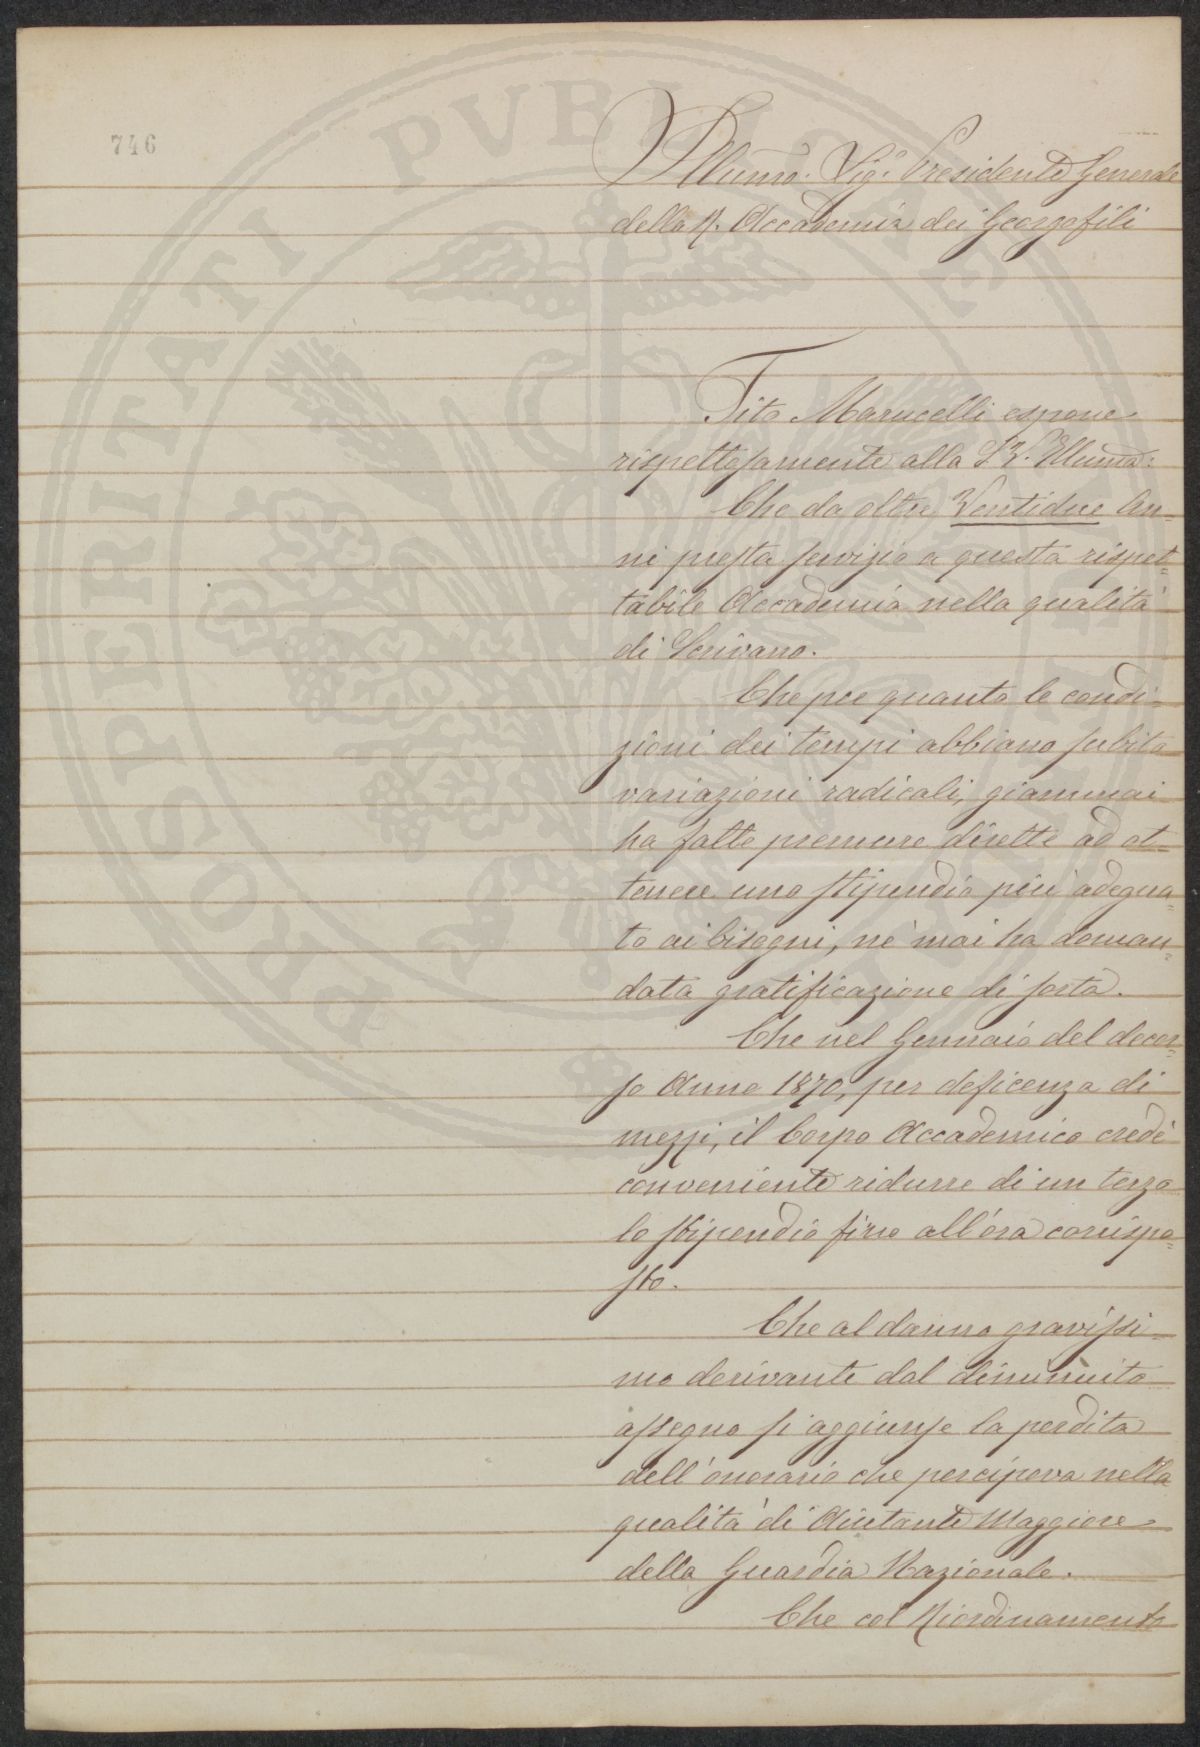 746
Illumo. Sigr. Presidente Generale
della R. Accademia dei Georgofili
Tito Marucelli espone
rispettosamente alla S. V. Illuma:
Che da oltre Ventidue An-
ni presta servizio a questa rispet-
tabile Accademia nella qualità
di Scrivano.
Che per quanto le condi-
zioni dei tempi abbiano subito
variazioni radicali, giammai
ha fatto premure dirette ad ot-
tenere uno stipendio più adegua-
to ai bisogni, nè mai ha doman-
data gratificazione di sorta.
Che nel Gennaio del decor-
so Anno 1870, per deficenza di
mezzi, il Corpo Accademico credè
conveniente ridurre di un terzo
lo stipendio fino all'ora corrispo-
sto.
Che al danno gravissi-
mo derivante dal diminuito
assegno si aggiunse la perdita
dell'onorario che percipeva nella
qualità di Aiutante Maggiore
della Guardia Nazionale.
Che col Riordinamento
PROSPERITATI PVBLICAE